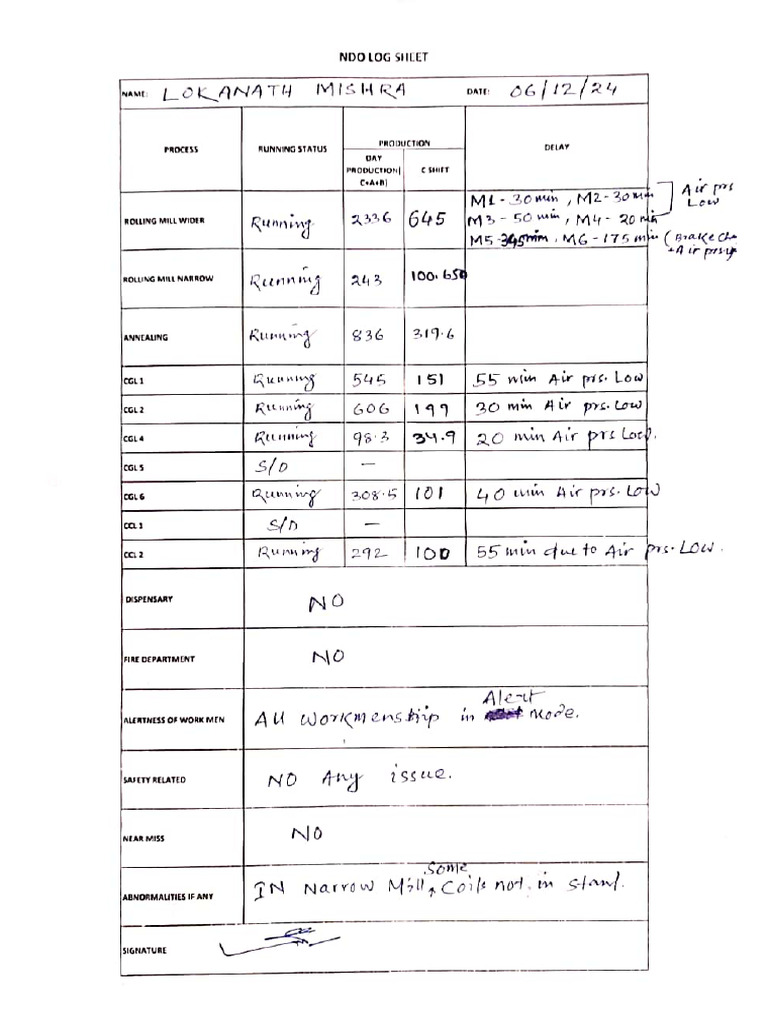 NDO LOG SHEET
NAME: LOKANATH MISHRA DATE: 06/12/24
PROCESS RUNNING STATUS PRODUCTION DELAY
DAY PRODUCTION( C+A+B) C SHIFT
ROLLING MILL WIDER Running 2336 645
M1 - 30 min , M2 - 30 min
M3 - 50 min , M4 - 20 min
Air prs Low
M5 - min, M6 - 175 min (Brake
+ Air
ROLLING MILL NARROW Running 243 100.650
ANNEALING Running 836 319.6
CGL 1 Running 545 151 55 min Air prs. Low
CGL 2 Running 606 199 30 min Air prs. Low
CGL 4 Running 98.3 34.9 20 min Air prs Low.
CGL 5 S/D —
CGL 6 Running 308.5 101 40 min Air prs. Low
CCL 1 S/D —
CCL 2 Running 292 100 55 min due to Air prs. Low.
DISPENSARY NO
FIRE DEPARTMENT NO
ALERTNESS OF WORK MEN All workmenship in Alert mode.
SAFETY RELATED NO Any issue.
NEAR MISS NO
ABNORMALITIES IF ANY IN Narrow Mill some Coils not in stand.
SIGNATURE